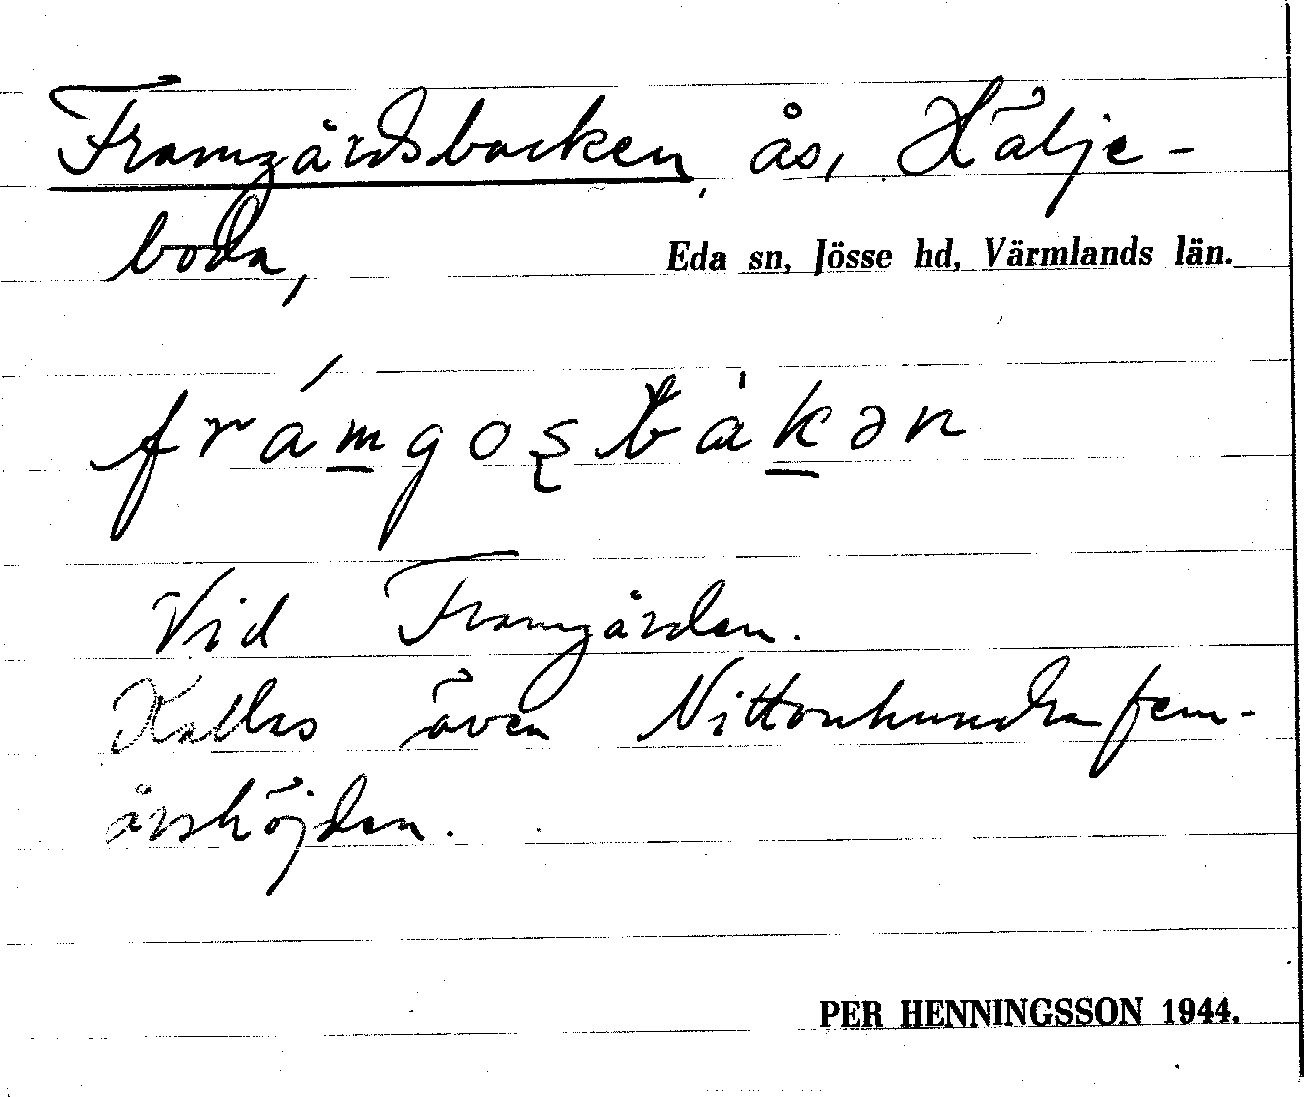 Framgårdsbacken, ås, Hälje-
boda,
Eda sn, Jösse hd, Värmlands län.
frámgosbàkən
Vid Framgården.
Kallas även Nittonhundrafem-
årshöjden.
PER HENNINGSSON 1944.